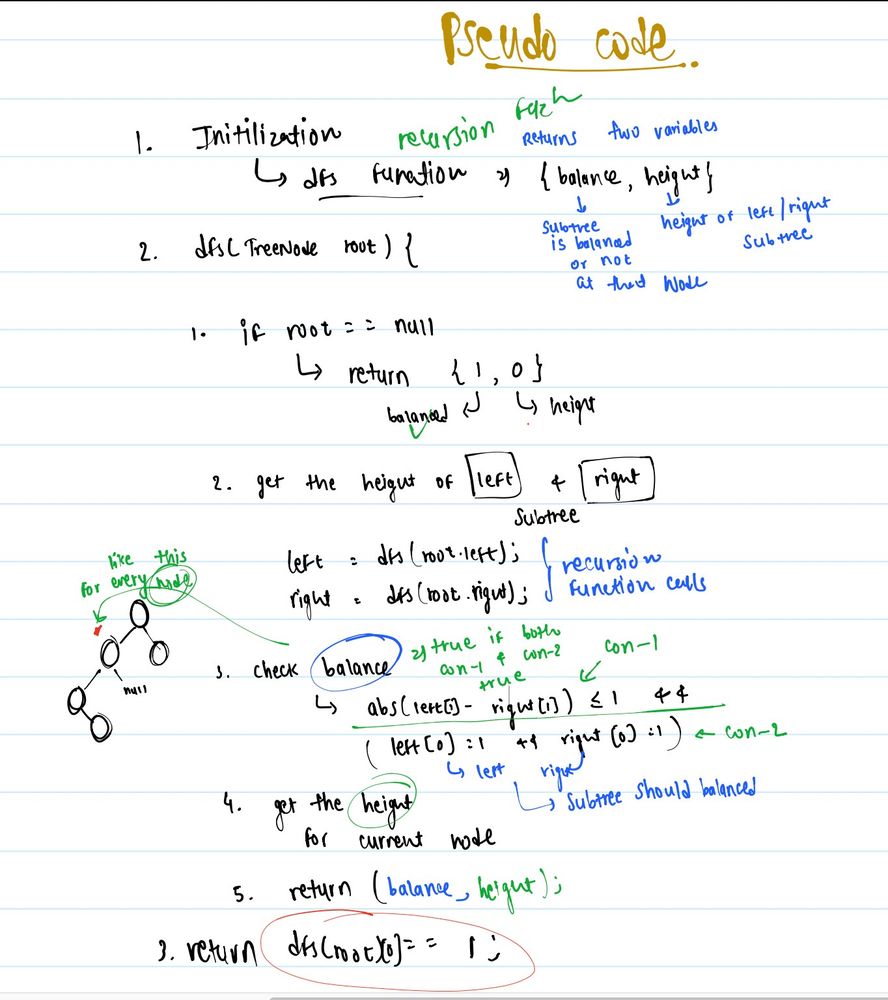 Pseudo code..
1. Initilization recursion
Returns two variables
↳ dfs function => {balance, height}
Subtree is balanced or not at that Node
height of left/right Subtree
2. dfs(TreeNode root) {
1. if root == null
↳ return {1, 0}
balanced ↲ ↳ height
2. get the height of left & right
Subtree
left = dfs(root.left);
right = dfs(root.right);
recursion function calls
like this
for every node
null
3. check balance => true if both
con-1 & con-2
true
con-1
↳ abs(left[1] - right[1]) ≤ 1 &&
(left[0] = 1 && right[0] = 1) ← con-2
↳ left right
↳ Subtree should balanced
4. get the height
for current node
5. return (balance, height);
3. return dfs(root)[0] == 1;